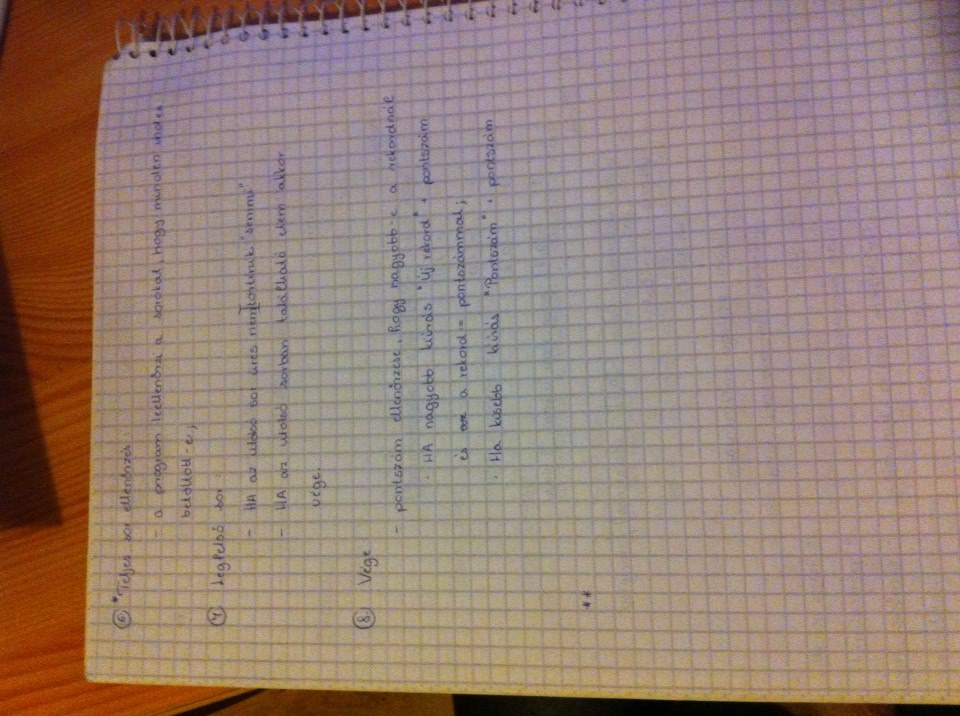 ⑥ *Teljes sor ellenőrzés
- a program leellenőrzi a sorokat, hogy minden index
betöltött-e;
⑦ Legfelső sor
- HA az utolsó sor üres nem történik "semmi"
- HA az utolsó sorban található elem akkor
vége.
⑧ Vége
- pontszám ellenőrzése, hogy nagyobb-e a rekordnál
· HA nagyobb kiírás "Új rekord" + pontszám
és a rekord = pontszámmal;
· Ha kisebb kiírás "Pontszám" + pontszám
**